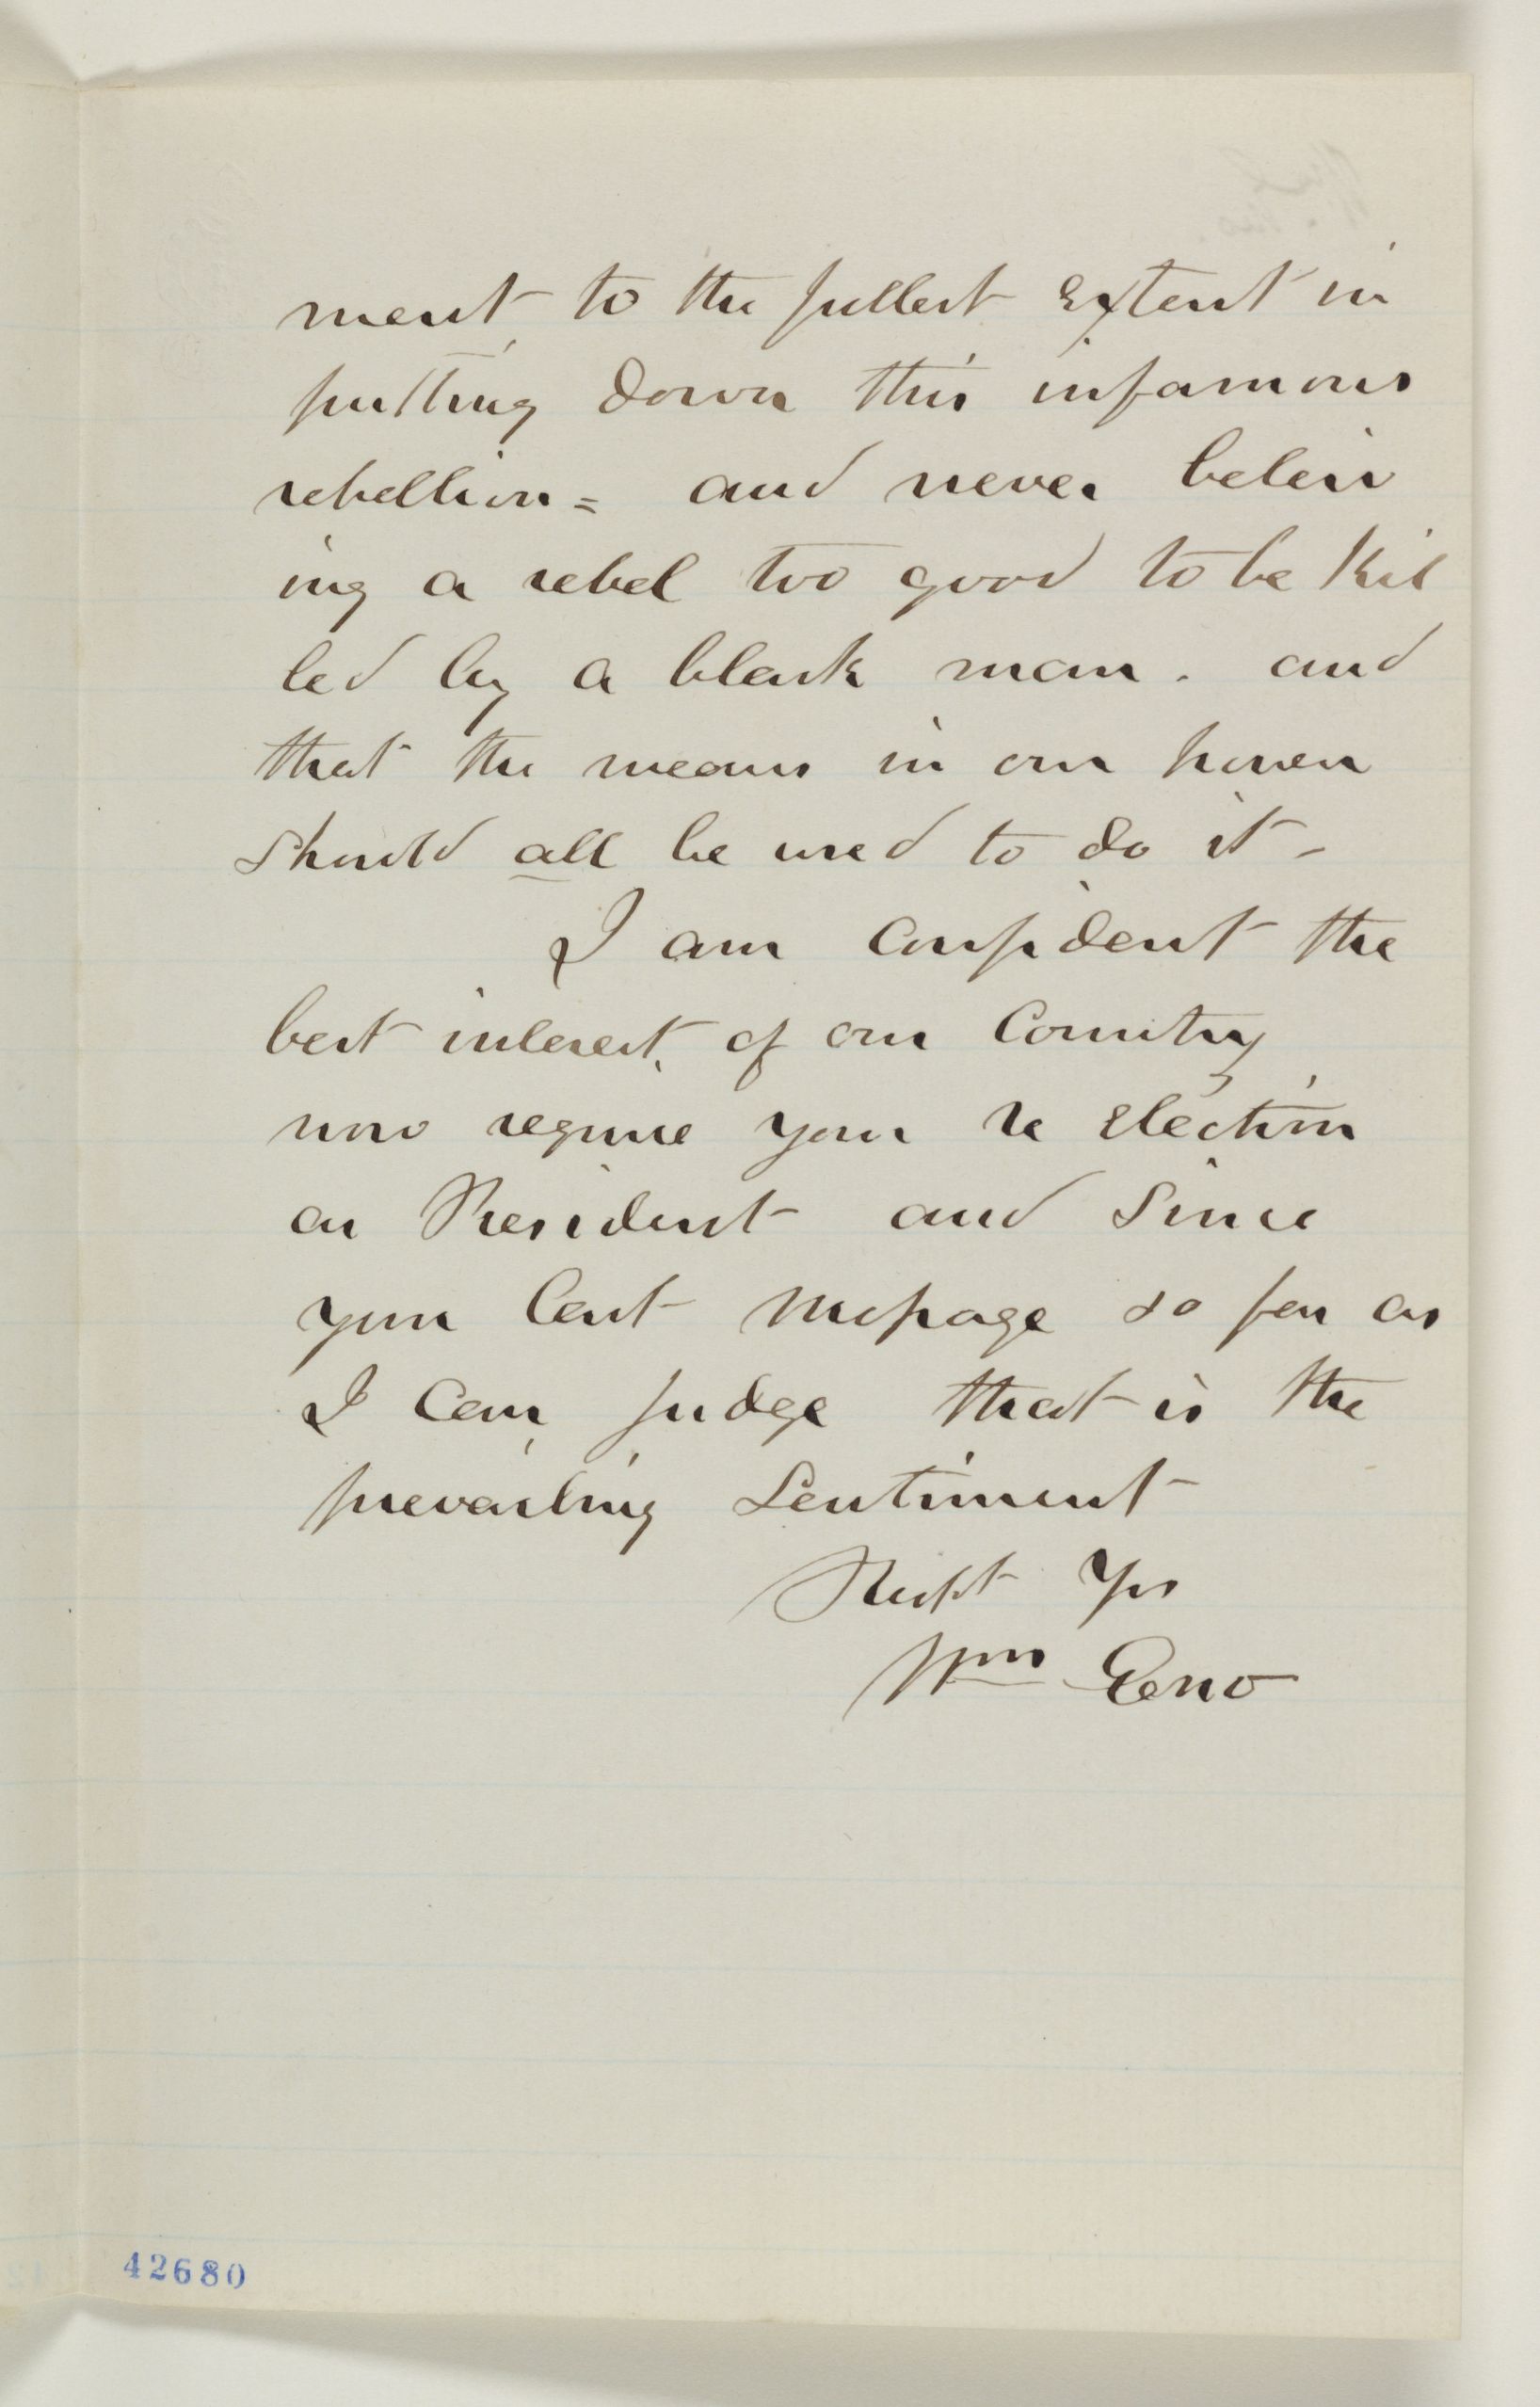 ment to the fullest extent in
putting down this infamous
rebellion = and never beleiv
ing a rebel too good to be kil
led by a black man. and
that the means in our power
should all be used to do it -
I am confident the
best interest of our Country
now require your re election
as President and since
your last message so far as
I can judge that is the
prevailing sentiment
Respt Yrs
Wm Eno
42680